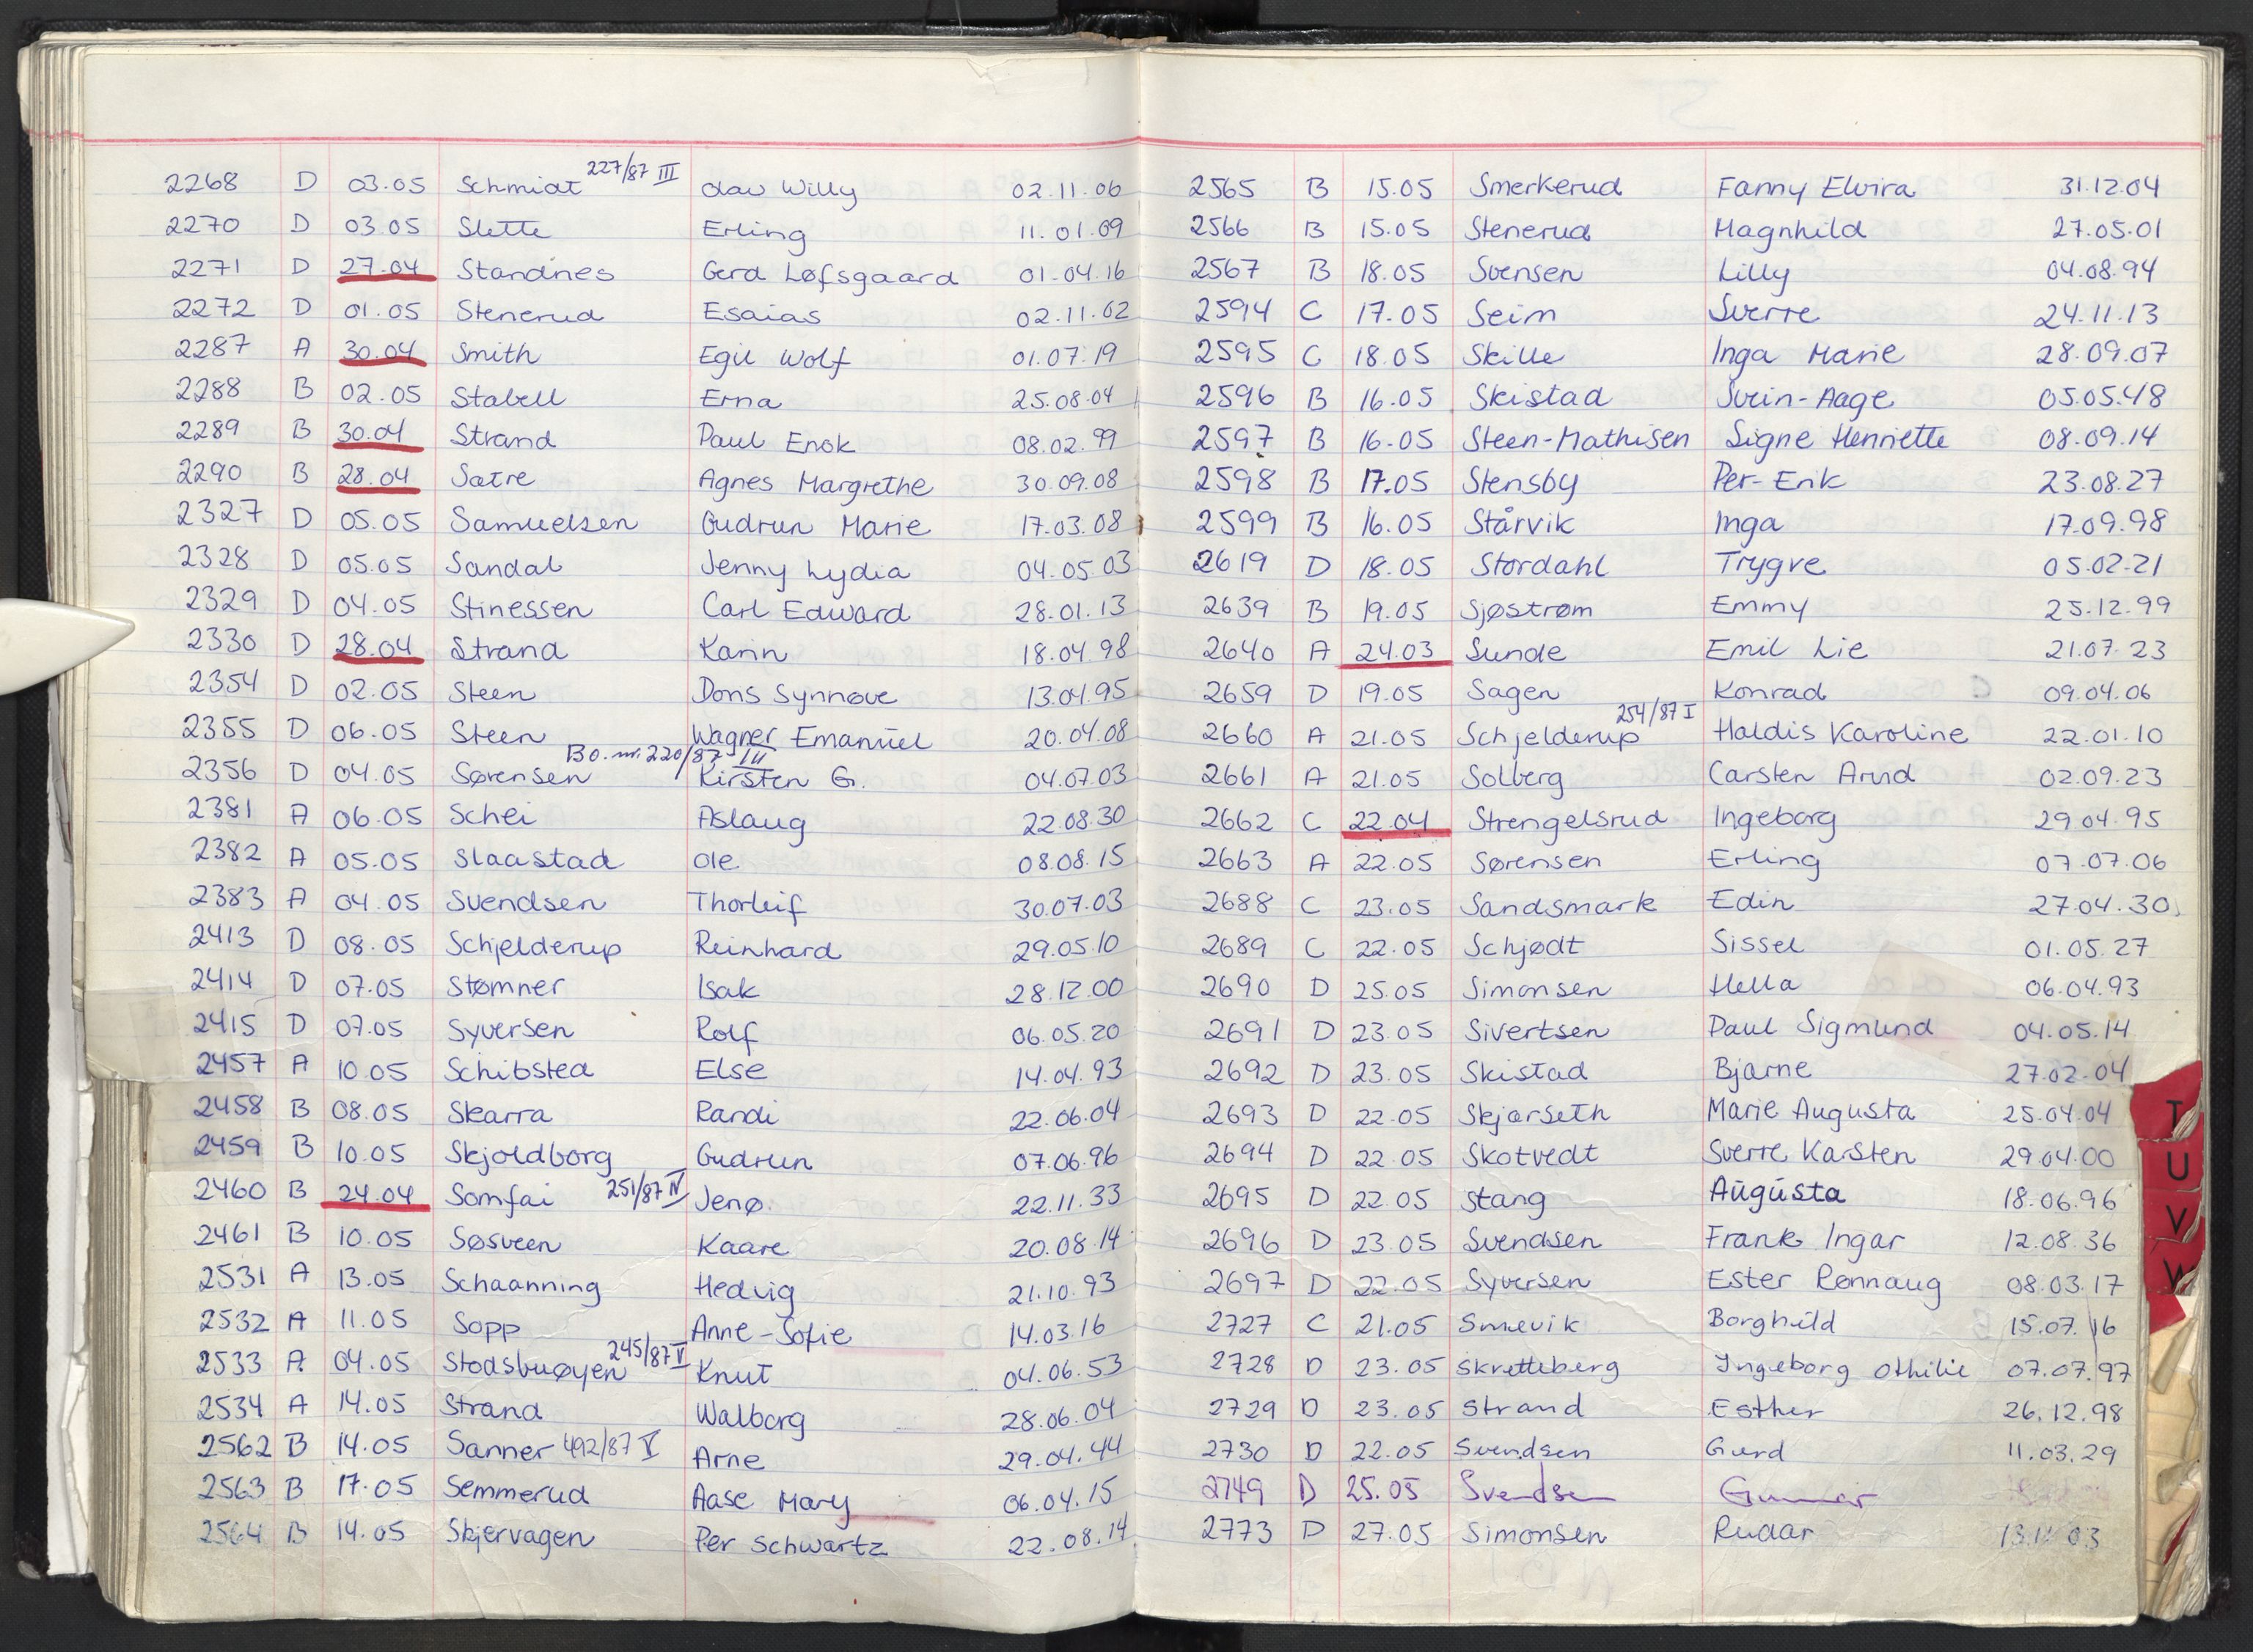 2268 D 03.05 Schmidt 227/87 III Olav Willy 02.11.06
2270 D 03.05 Slette Erling 11.01.09
2271 D 27.04 Standnes Gerd Løfsgaard 01.04.16
2272 D 01.05 Stenerud Esaias 02.11.62
2287 A 30.04 Smith Egil Wolf 01.07.19
2288 B 02.05 Stabell Erna 25.08.04
2289 B 30.04 Strand Paul Enok 08.02.99
2290 B 28.04 Satre Agnes Margrethe 30.09.08
2327 D 05.05 Samuelsen Gudrun Marie 17.03.08
2328 D 05.05 Sandal Jenny Lydia 04.05.03
2329 D 04.05 Stinessen Carl Edward 28.01.13
2330 D 28.04 Strand Karin 18.04.98
2354 D 02.05 Steen Doris Synnøve 13.04.95
2355 D 06.05 Steen Wagner Emanuel 20.04.08
Bo. nr. 220/87 III
2356 D 04.05 Sørensen Kirsten G. 04.07.03
2381 A 06.05 Schei Aslaug 22.08.30
2382 A 05.05 Slaastad Ole 08.08.15
2383 A 04.05 Svendsen Thorleif 30.07.03
2413 D 08.05 Schjelderup Reinhard 29.05.10
2414 D 07.05 Stømner Isak 28.12.00
2415 D 07.05 Syversen Rolf 06.05.20
2457 A 10.05 Schibsted Else 14.04.93
2458 B 08.05 Skarra Randi 22.06.04
2459 B 10.05 Skjoldborg Gudrun 07.06.96
2460 B 24.04 Somfai 251/87 IV Jenø 22.11.33
2461 B 10.05 Søsveen Kaare 20.08.14
2531 A 13.05 Schaanning Hedvig 21.10.93
2532 A 11.05 Sopp Anne-Sofie 14.03.16
2533 A 04.05 Stodsbuøyen 245/87 V Knut 04.06.53
2534 A 14.05 Strand Walborg 28.06.04
2562 B 14.05 Sanner 492/87 V Arne 29.04.44
2563 B 17.05 Semmerud Aase Mary 06.04.15
2564 B 14.05 Skjervagen Per Schwartz 22.08.14
2565 B 15.05 Smerkerud Fanny Elvira 31.12.04
2566 B 15.05 Stenerud Magnhild 27.05.01
2567 B 18.05 Svensen Lilly 04.08.94
2594 C 17.05 Seim Sverre 24.11.13
2595 C 18.05 Skille Inga Marie 28.09.07
2596 B 16.05 Skistad Svein-Aage 05.05.48
2597 B 16.05 Steen-Mathisen Signe Henriette 08.09.14
2598 B 17.05 Stensby Per-Erik 23.08.27
2599 B 16.05 Stårvik Inga 17.09.98
2619 D 18.05 Stordahl Trygve 05.02.21
2639 B 19.05 Sjøstrøm Emmy 25.12.99
2640 A 24.03 Sunde Emil Lie 21.07.23
2659 D 19.05 Sagen Konrad 09.04.06
2660 A 21.05 Schjelderup 254/87 I Haldis Karoline 22.01.10
2661 A 21.05 Solberg Carsten Arvid 02.09.23
2662 C 22.04 Strengelsrud Ingeborg 29.04.95
2663 A 22.05 Sørensen Erling 07.07.06
2688 C 23.05 Sandsmark Edin 27.04.30
2689 C 22.05 Schjødt Sissel 01.05.27
2690 D 25.05 Simonsen Hella 06.04.93
2691 D 23.05 Sivertsen Paul Sigmund 04.05.14
2692 D 23.05 Skistad Bjarne 27.02.04
2693 D 22.05 Skjarseth Marie Augusta 25.04.04
2694 D 22.05 Skotvedt Sverre Karsten 29.04.00
2695 D 22.05 Stang Augusta 18.06.96
2696 D 23.05 Svendsen Frank Ingar 12.08.36
2697 D 22.05 Syversen Ester Rønnaug 08.03.17
2727 C 21.05 Smevik Borghild 15.07.16
2728 D 23.05 Skretteberg Ingeborg Othilie 07.07.97
2729 D 23.05 Strand Esther 26.12.98
2730 D 22.05 Svendsen Gerd 11.03.29
2749 D 25.05 Svendsen Gunnar
2773 D 27.05 Simonsen Rudar 13.11.03
T
U
V
W